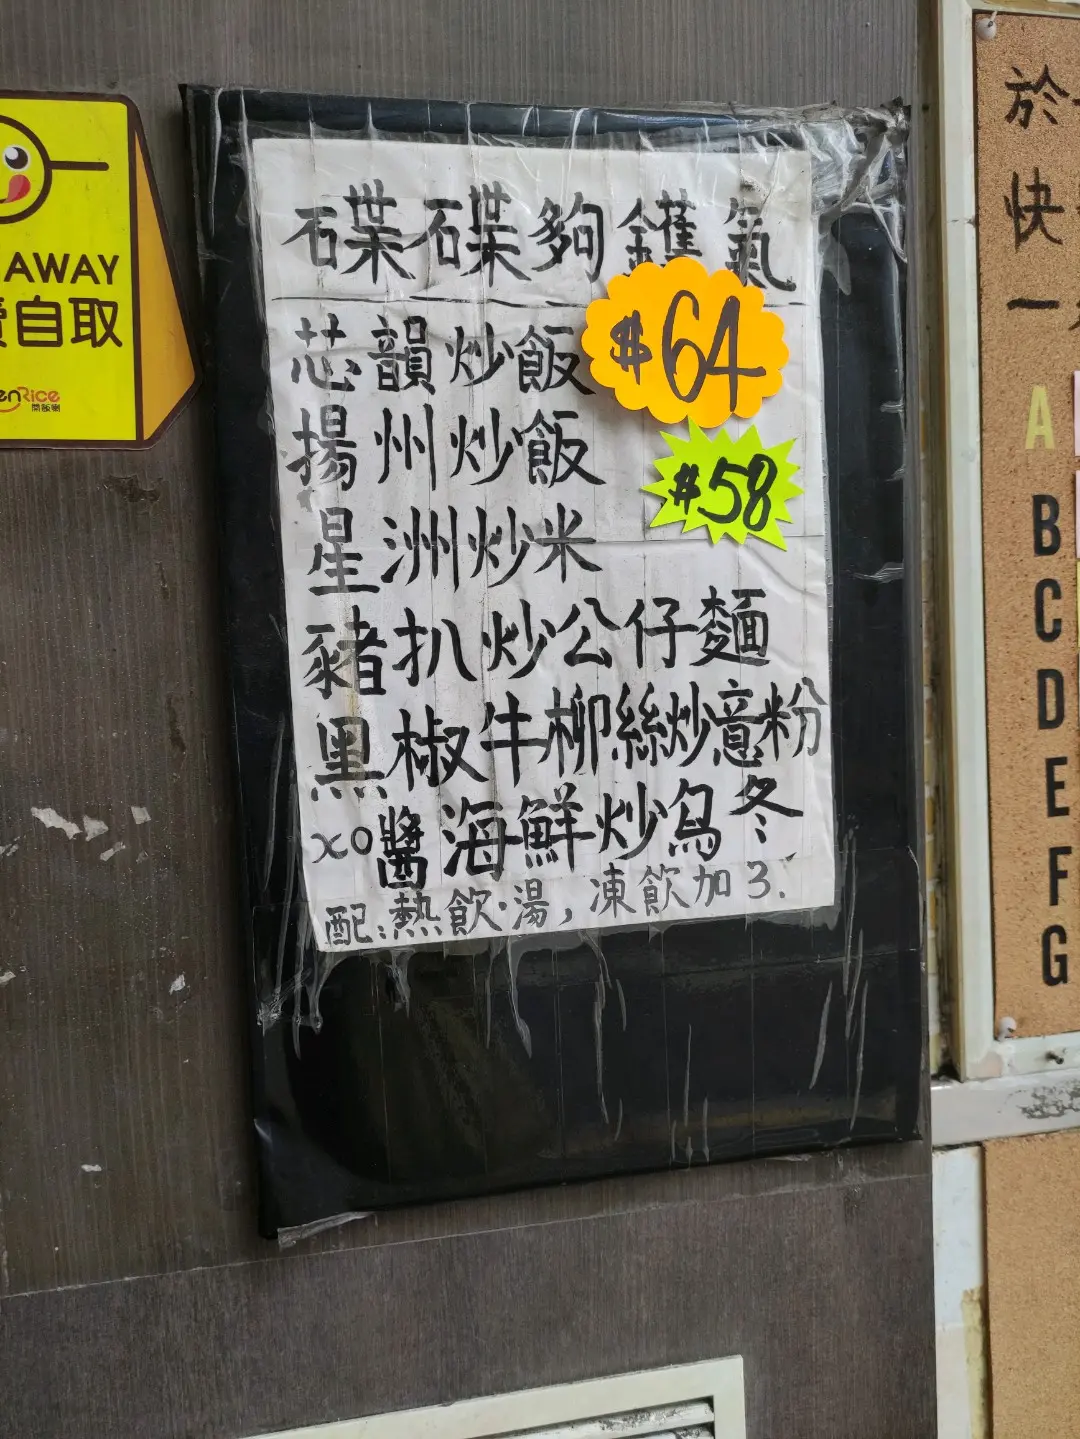 AWAY
自取
enRice
開飯喇
碟碟夠鑊氣
芯韻炒飯 $64
揚州炒飯
$58
星洲炒米
豬扒炒公仔麵
黑椒牛柳絲炒意粉
XO醬海鮮炒烏冬
配:熱飲.湯,凍飲加3.
於
快
一
A
B
C
D
E
F
G